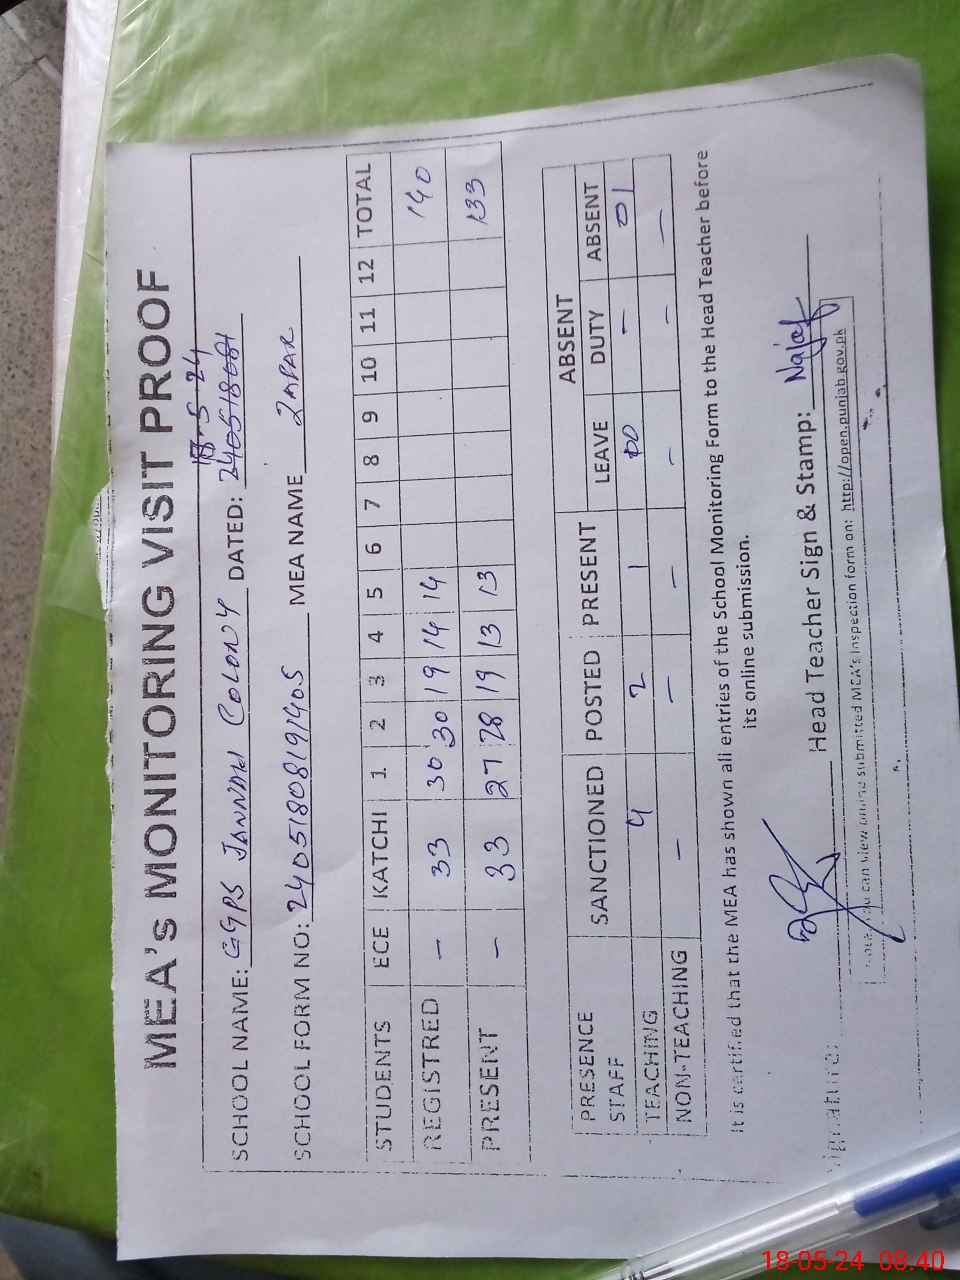 MEA's MONITORING VISIT PROOF
18-5-24
SCHOOL NAME: GGPS JANNAH COLONY DATED: 240518081
SCHOOL FORM NO: 24051808191405 MEA NAME ZAFAR
STUDENTS ECE KATCHI 1 2 3 4 5 6 7 8 9 10 11 12 TOTAL
REGISTRED - 33 30 30 19 14 14 140
PRESENT - 33 27 28 19 13 13 133
PRESENCE STAFF SANCTIONED POSTED PRESENT ABSENT
LEAVE DUTY ABSENT
TEACHING 4 2 1 00 - 01
NON-TEACHING - - - - - -
It is certified that the MEA has shown all entries of the School Monitoring Form to the Head Teacher before
its online submission.
Signature: Head Teacher Sign & Stamp: Najaf
you can view online submitted MEA's Inspection form on: http://open.punjab.gov.pk
18-05-24 08:40